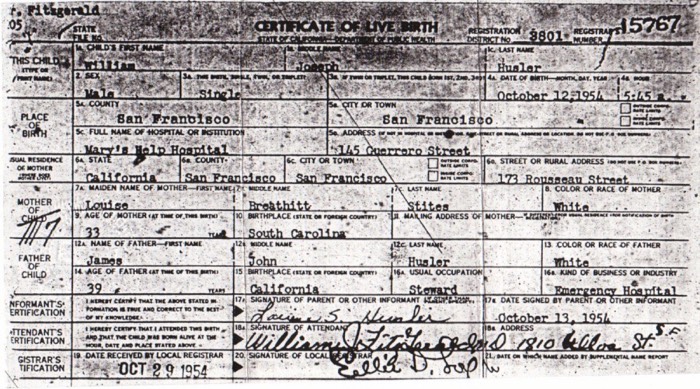 r. Fitzgerald
05
STATE FILE NO.
CERTIFICATE OF LIVE BIRTH
STATE OF CALIFORNIA—DEPARTMENT OF PUBLIC HEALTH
REGISTRATION DISTRICT NO. 3801
REGISTRAR'S NUMBER 15767
THIS CHILD (TYPE OR PRINT NAME)
1A. CHILD'S FIRST NAME 1B. MIDDLE NAME 1C. LAST NAME
William Joseph Husler
2. SEX 3A. THIS BIRTH, SINGLE, TWIN, OR TRIPLET? 3B. IF TWIN OR TRIPLET, THIS CHILD BORN 1ST, 2ND, 3RD? 4A. DATE OF BIRTH—MONTH, DAY, YEAR 4B. HOUR
Male Single October 12,1954 5:45 a.
PLACE OF BIRTH
5A. COUNTY 5B. CITY OR TOWN
San Francisco San Francisco
5C. FULL NAME OF HOSPITAL OR INSTITUTION 5D. ADDRESS
Mary's Help Hospital 145 Guerrero Street
USUAL RESIDENCE OF MOTHER
6A. STATE 6B. COUNTY 6C. CITY OR TOWN 6D. STREET OR RURAL ADDRESS
California San Francisco San Francisco 173 Rousseau Street
MOTHER OF CHILD
7A. MAIDEN NAME OF MOTHER—FIRST NAME 7B. MIDDLE NAME 7C. LAST NAME 8. COLOR OR RACE OF MOTHER
Louise Breathitt Stites White
9. AGE OF MOTHER (AT TIME OF THIS BIRTH) 10. BIRTHPLACE (STATE OR FOREIGN COUNTRY) 11. MAILING ADDRESS OF MOTHER
33 YEARS South Carolina
FATHER OF CHILD
12A. NAME OF FATHER—FIRST NAME 12B. MIDDLE NAME 12C. LAST NAME 13. COLOR OR RACE OF FATHER
James John Husler White
14. AGE OF FATHER (AT TIME OF THIS BIRTH) 15. BIRTHPLACE (STATE OR FOREIGN COUNTRY) 16A. USUAL OCCUPATION 16B. KIND OF BUSINESS OR INDUSTRY
39 YEARS California Steward Emergency Hospital
INFORMANT'S CERTIFICATION
I HEREBY CERTIFY THAT THE ABOVE STATED INFORMATION IS TRUE AND CORRECT TO THE BEST OF MY KNOWLEDGE.
17A. SIGNATURE OF PARENT OR OTHER INFORMANT 17B. DATE SIGNED BY PARENT OR OTHER INFORMANT
Louise S. Husler October 13, 1954
ATTENDANT'S CERTIFICATION
I HEREBY CERTIFY THAT I ATTENDED THIS BIRTH AND THAT THE CHILD WAS BORN ALIVE AT THE HOUR, DATE AND PLACE STATED ABOVE.
18A. SIGNATURE OF ATTENDANT 18B. ADDRESS
William J Fitzgerald M D 1810 Ulloa St. S.F.
REGISTRAR'S CERTIFICATION
19. DATE RECEIVED BY LOCAL REGISTRAR 20. SIGNATURE OF LOCAL REGISTRAR 21. DATE ON WHICH NAME ADDED BY SUPPLEMENTAL NAME REPORT
OCT 29 1954